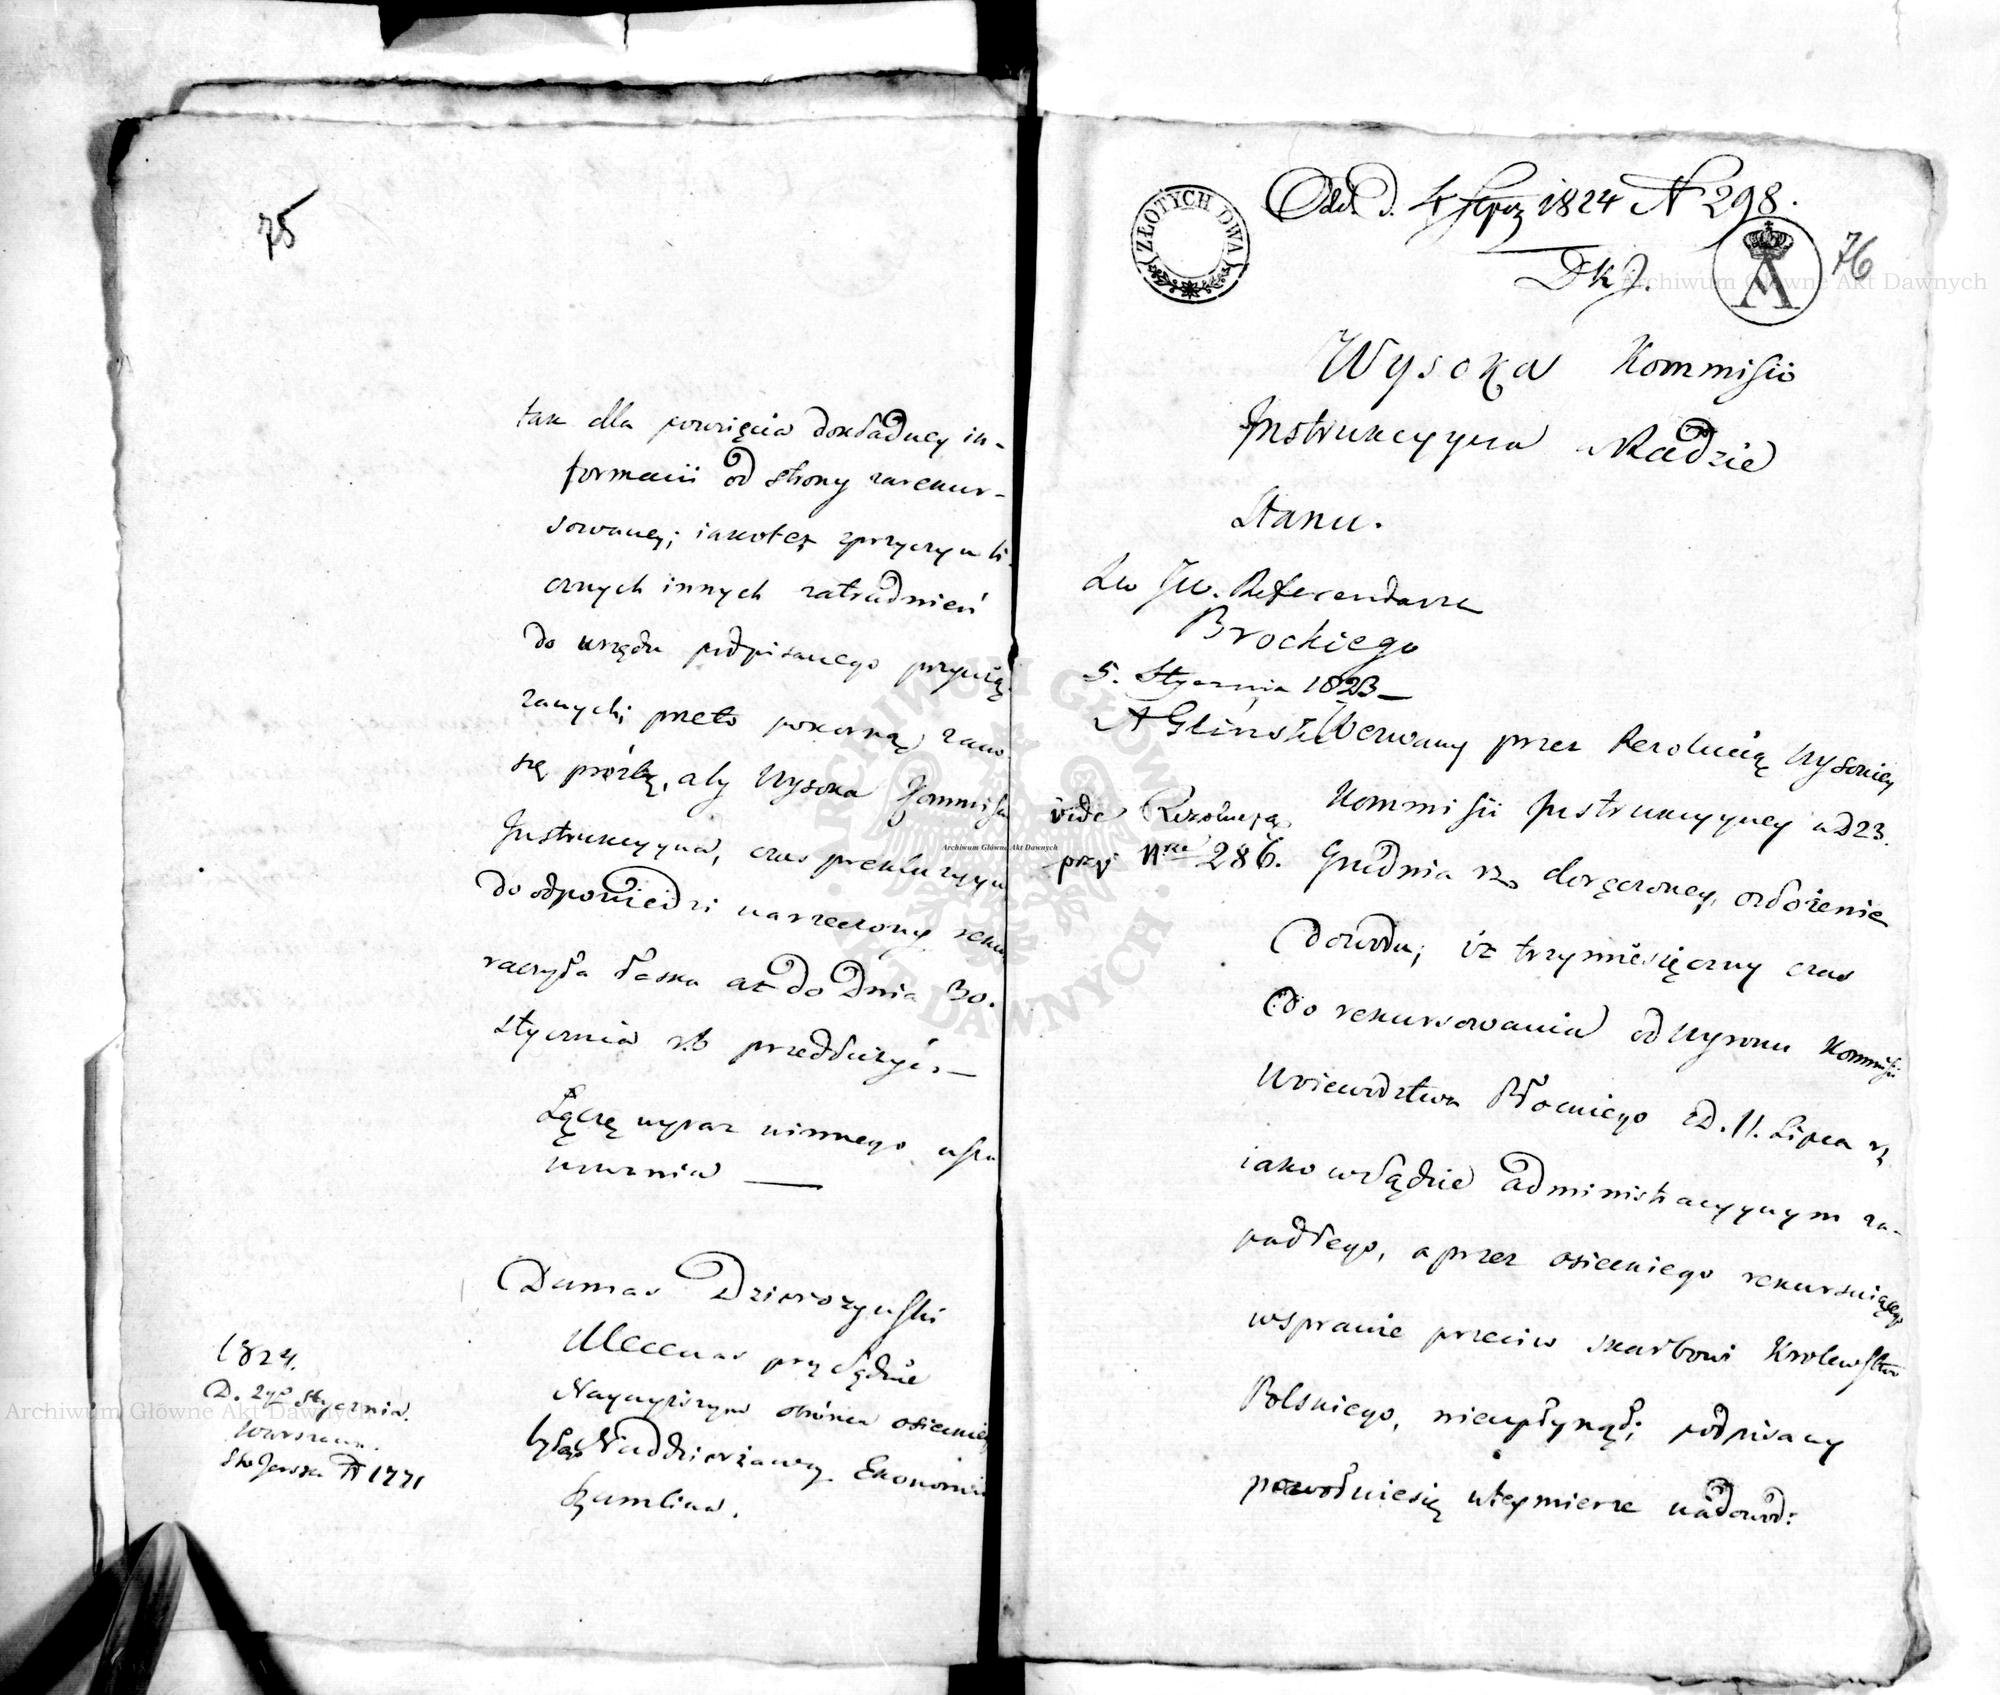 75
tak dla powzięcia dokładney in-
formacii od strony zarekur-
sowaney; iakoteż zprzyczyn li-
cznych innych zatrudnień
do urzędu podpisanego przywią
zanych; przeto pokorną zano
się prózbę, aby Wysoka Kommisia
Instrukcyyna, czas prekluzyyny
do odpowiedzi na rzeczony rekurs
raczyła łaska aż do Dnia 30.
stycznia r.b przedłużyć. —
Łączę wyraz winnego usza
nowania —
Damas Dzierożyński
Mecenas przy Sądzie
Naywyższym obrońca osieckiej
byłego Naddzierżawcy Ekonomii
1824.
D. 2go Stycznia.
Warszawa.
Sto Jerska N 1771
ZŁOTYCH DWA
Odd. d. 4 Stycz 1824 N 298.
DKJ.
A
76
Wysoka Kommisio
Instrukcyyna w Radzie
Stanu.
Do JW. Referendarza
Brockiego
5. Stycznia 1823 —
A Gliński
Wezwany przez Rezolucią Wysokiey
vide Rezolucyą
przy Nrze 286.
Kommisii Instrukcyyney ad 23.
Grudnia rz. doręczoney, o złożenie
Dowodu; iż trzymiesięczny czas
do rekursowania od Wyroku Kommisii
Woiewództwa Płockiego z D. 11. Lipca rz
iako w Sądzie administracyynym za-
padłego, a przez osieckiego rekursuiącego
wsprawie przeciw skarbowi Krolewstwa
Polskiego, nieupłynął; podpisany
powołuiesię wteymierze nadowód:
Archiwum Główne Akt Dawnych
Archiwum Główne Akt Dawnych
Archiwum Główne Akt Dawnych
ARCHIWUM GŁÓWNE AKT DAWNYCH